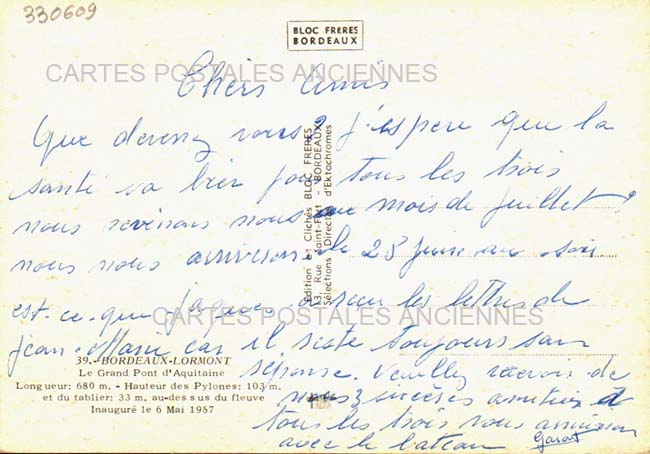 330609
BLOC FRÈRES
BORDEAUX
CARTES POSTALES ANCIENNES
Chers Amis
Que devenez vous? j'espere que la
santé va bien pour tous les trois
nous revenons nous au mois de juillet
nous nous arriverons le 28 juin au soir
est-ce-que Jacques a recu les lettres de
jean-Marie car il reste toujours san
réponse. Veuillez recevoir de
nous sincères amitiés
tous les trois nous arriverons
avec le bateau
Edition et Clichés BLOC FRÈRES
13, Rue Saint-Fort - BORDEAUX
Sélections Directes d'Ektachromes
CARTES POSTALES ANCIENNES
39. - BORDEAUX-LORMONT
Le Grand Pont d'Aquitaine
Longueur: 680 m. - Hauteur des Pylones: 103 m.
et du tablier: 33 m. au-dessus du fleuve
Inauguré le 6 Mai 1967